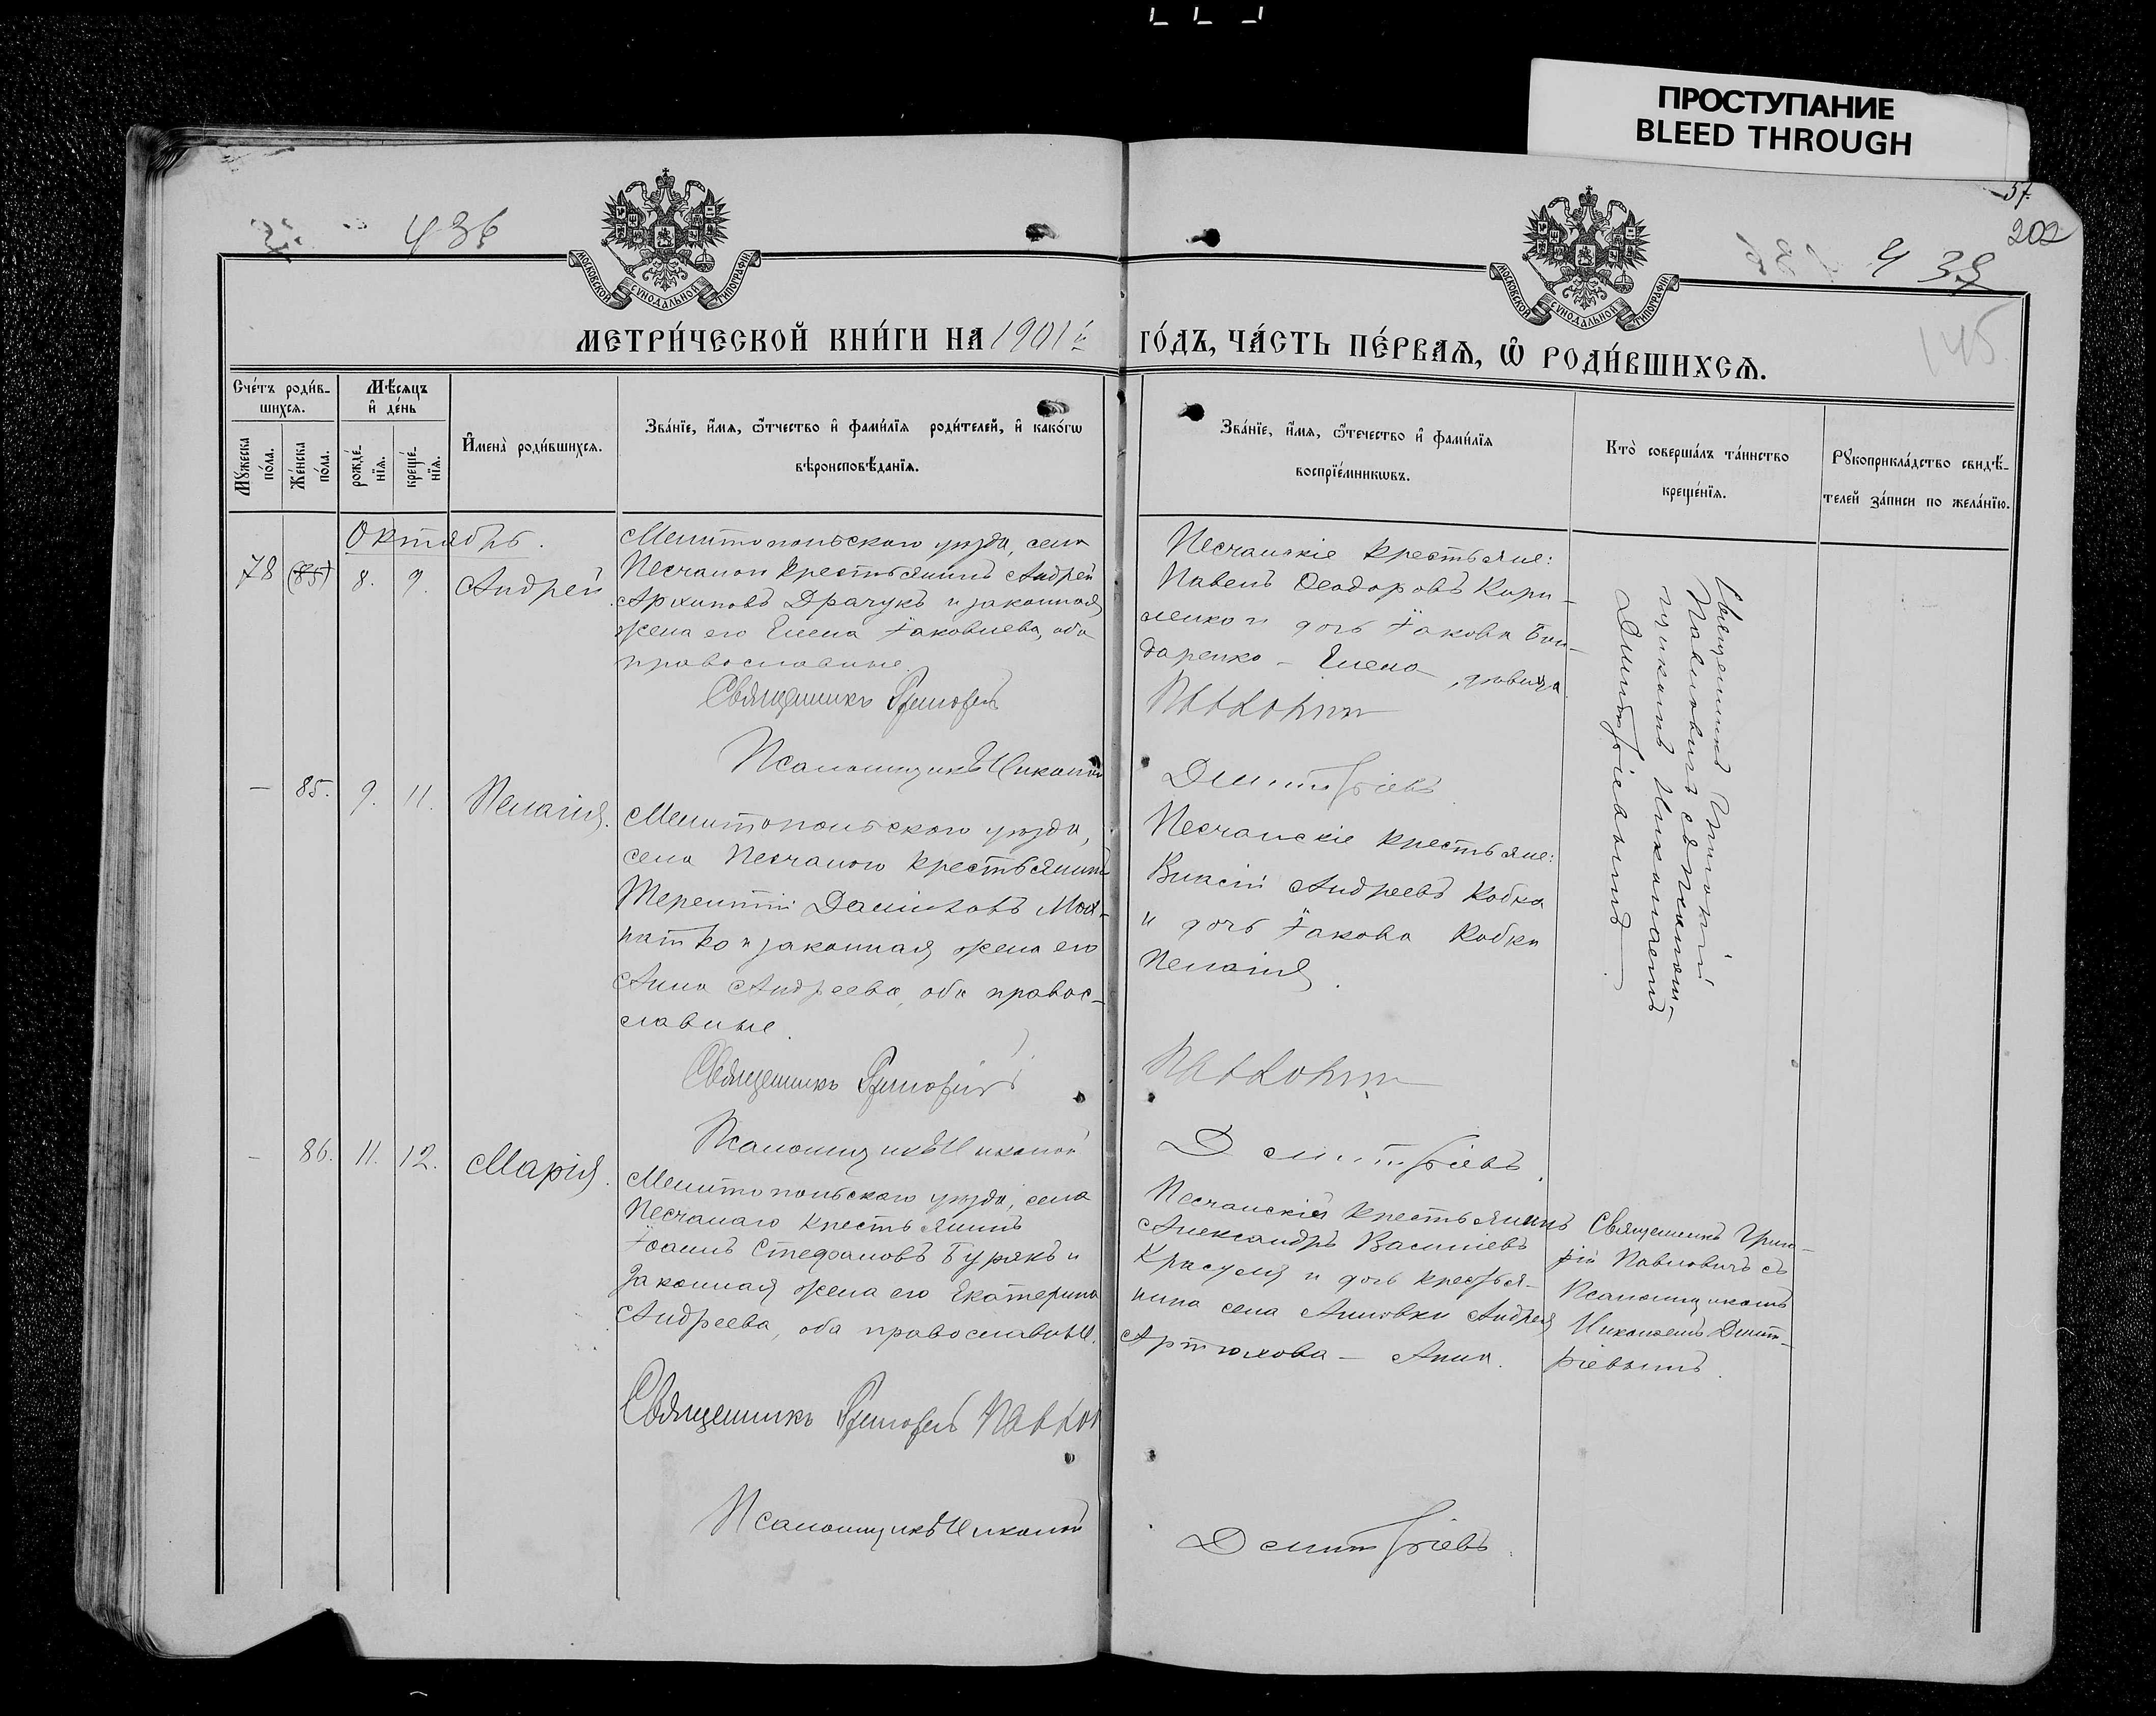 ПРОСТУПАНИЕ
BLEED THROUGH
57.
202
436
439
145
МОСКОВСКОЙ СУНОДАЛЬНОЙ ТИПОГРАФІИ
МОСКОВСКОЙ СУНОДАЛЬНОЙ ТИПОГРАФІИ
МЕТРИ́ЧЕСКОЙ КНИ́ГИ НА 1901й
ГО́ДЪ, ЧА́СТЬ ПЕ́РВАѦ, Ѡ҆ РОДИ́ВШИХСѦ.
Сче́тъ роди́в-
шихсѧ.
Мꙋжеска
по́ла.
Же́нска
по́ла.
Мѣ́сяцъ
и҆ де́нь
рожде́-
нїѧ.
креще́-
нїѧ.
И҆мена̀ роди́вшихсѧ.
Зва́нїе, и҆́мѧ, ѻ҆́тчество и҆ фами́лїѧ роди́телей, и҆ како́гѡ
вѣроисповѣ́данїѧ.
Зва́нїе, и҆́мѧ, ѻ҆́течество и҆ фами́лїѧ
воспрїе́мникѡвъ.
Кто̀ соверша́лъ та́инство
креще́нїѧ.
Рꙋкоприкла́дство свидѣ́-
телей за́писи по жела́нїю.
Октябрь.
78 (85) 8. 9. Андрей
Мелитопольскаго уѣзда, села
Песчаной крестьянинъ Андрей
Архиповъ Драчукъ и законная
жена его Елена Іаковлева, оба
православные.
Священникъ Григорій
Псаломщикъ Николай
Песчанскіе крестьяне:
Павелъ Ѳеодоровъ Кири-
ленко и дочь Іакова Бон-
даренко - Елена, дѣвица.
Павловичъ
Дмитріевъ
Священникъ Григорій
Павловичъ съ псалом-
щикомъ Николаемъ
Дмитріевымъ.
— 85. 9. 11. Пелагія.
Мелитопольскаго уѣзда,
села Песчаного крестьянинъ
Терентій Даниловъ
и законная жена его
Анна Андреева, оба правос-
лавные.
Священникъ Григорій
Псаломщикъ Николай
Песчанскіе крестьяне:
Власій Андреевъ Кобка
и дочь Іакова Кобки
Пелагія.
Павловичъ
Дмитріевъ.
— 86. 11. 12. Марія.
Мелитопольскаго уѣзда, села
Песчанаго крестьянинъ
Іоаннъ Стефановъ Бурякъ и
законная жена его Екатерина
Андреева, оба православные.
Священникъ Григорій Павлов
Псаломщикъ Николай
Песчанскій крестьянинъ
Александръ Василіевъ
Красуля и дочь крестья-
нина села Анновки Андрея
Артюхова - Анна.
Дмитріевъ.
Священникъ Григо-
рій Павловичъ съ
Псаломщикомъ
Николаемъ Дмит-
ріевымъ.